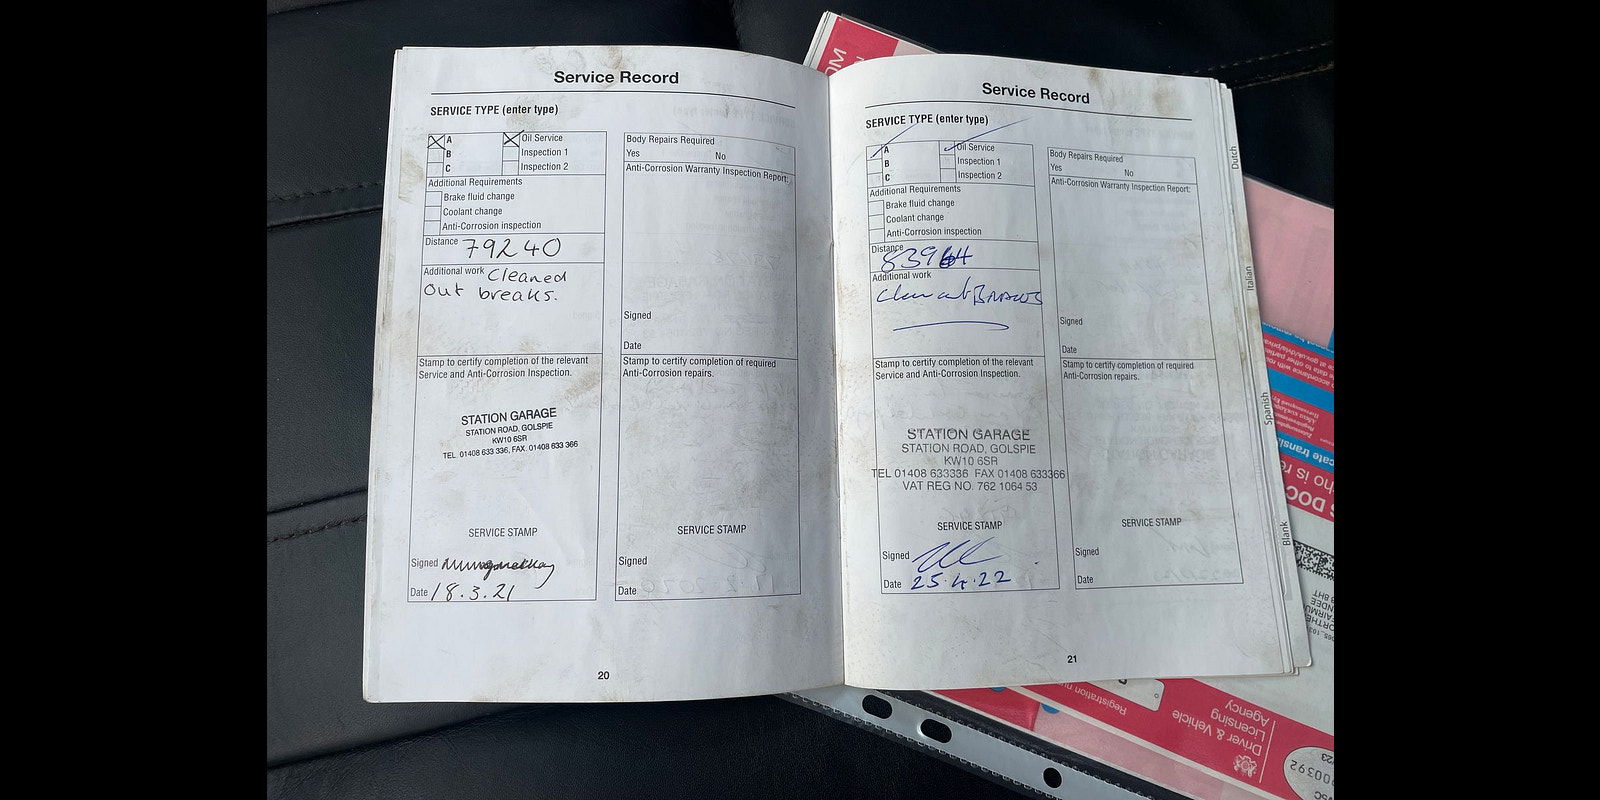 Service Record
SERVICE TYPE (enter type)
A
Oil Service
B
Inspection 1
C
Inspection 2
Additional Requirements
Brake fluid change
Coolant change
Anti-Corrosion inspection
Distance 79240
Additional work Cleaned
Out breaks.
Stamp to certify completion of the relevant
Service and Anti-Corrosion Inspection.
STATION GARAGE
STATION ROAD, GOLSPIE
KW10 6SR
TEL. 01408 633 336, FAX. 01408 633 366
SERVICE STAMP
Signed
Date 18.3.21
Body Repairs Required
Yes No
Anti-Corrosion Warranty Inspection Report:
Signed
Date
Stamp to certify completion of required
Anti-Corrosion repairs.
SERVICE STAMP
Signed
Date
20
Service Record
SERVICE TYPE (enter type)
A
Oil Service
B
Inspection 1
C
Inspection 2
Additional Requirements
Brake fluid change
Coolant change
Anti-Corrosion inspection
Distance
83964
Additional work
Stamp to certify completion of the relevant
Service and Anti-Corrosion Inspection.
STATION GARAGE
STATION ROAD, GOLSPIE
KW10 6SR
TEL 01408 633336 FAX 01408 633366
VAT REG NO. 762 1064 53
SERVICE STAMP
Signed
Date 25.4.22
Body Repairs Required
Yes No
Anti-Corrosion Warranty Inspection Report:
Signed
Date
Stamp to certify completion of required
Anti-Corrosion repairs.
SERVICE STAMP
Signed
Date
21
Dutch
Italian
Spanish
Blank
Driver & Vehicle
Licensing
Agency